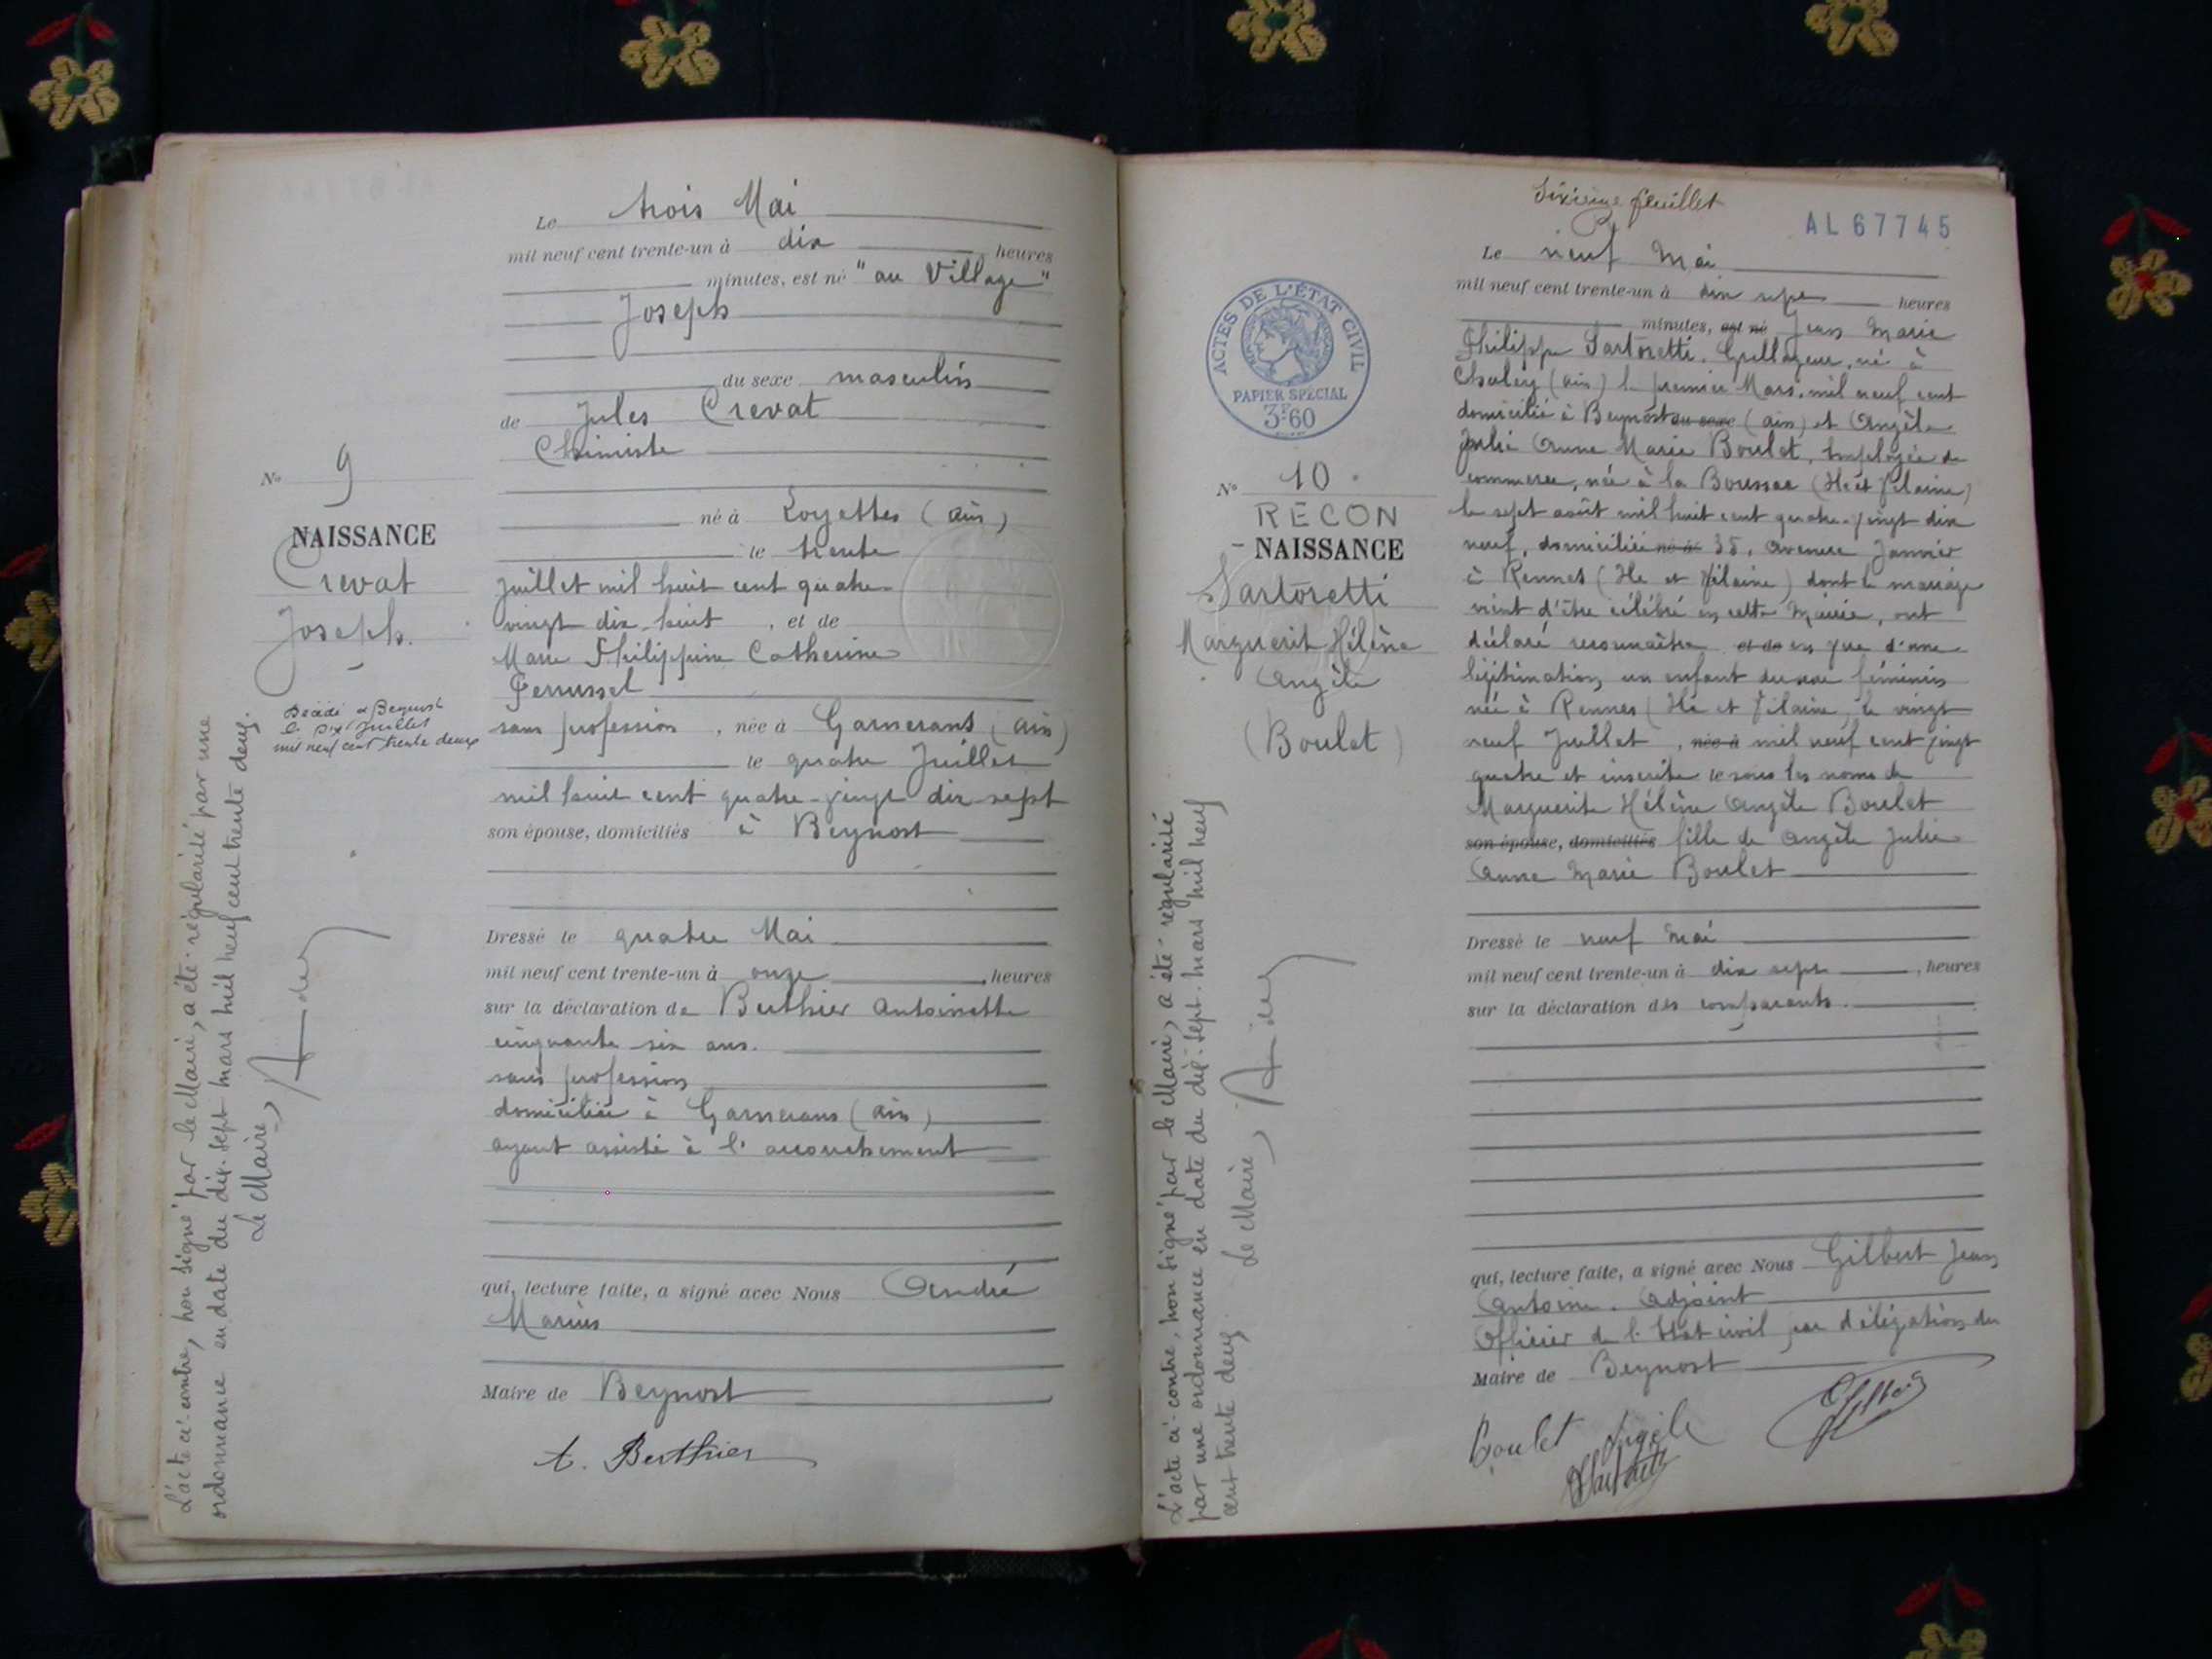 Le trois Mai
mil neuf cent trente-un à dix heures
minutes, est né "au Village"
Joseph
du sexe masculin
de Jules Crevat
Chimiste
né à Loyettes (ain)
le trente
juillet mil huit cent quatre
vingt dix-huit, et de
Marie Philippine Catherine
Ferrussel
sans profession, née à Garnerans (ain)
le quatre Juillet
mil huit cent quatre-vingt dix-sept
son épouse, domiciliés à Beynost
Dressé le quatre Mai
mil neuf cent trente-un à onze heures
sur la déclaration de Berthier Antoinette
cinquante six ans.
sans profession
domiciliée à Garnerans (ain)
ayant assisté à l'accouchement
qui, lecture faite, a signé avec Nous André
Marius
Maire de Beynost
A. Berthier
No 9
NAISSANCE
Crevat
Joseph.
Décédé à Beynost
le dix Juillet
mil neuf cent trente deux
L'acte ci-contre, non signé par le Maire, a été régularisé par une
ordonnance en date du dix-sept mars mil neuf cent trente deux.
Le Maire,
Sixième feuillet
AL67745
Le neuf Mai
mil neuf cent trente-un à dix sept heures
minutes, est né Jean Marie
Philippe Sartoretti, Grillageur, né à
Chaley (ain) le premier Mars mil neuf cent
domicilié à Beynost du sexe (ain) et Angèle
Julie Anne Marie Boulet, Employée de
commerce, née à la Boussac (Ile et Vilaine)
le sept août mil huit cent quatre-vingt dix
neuf, domiciliée né à 35, avenue Janvier
à Rennes (Ile et Vilaine) dont le mariage
vient d'être célébré en cette Mairie, ont
déclaré reconnaître et de en vue d'une
légitimation, un enfant du sexe féminin
née à Rennes (Ile et Vilaine) le vingt
neuf Juillet, née à mil neuf cent vingt
quatre et inscrite le sous les noms de
Marguerite Hélène Angèle Boulet
son épouse, domiciliés fille de Angèle Julie
Anne Marie Boulet
Dressé le neuf Mai
mil neuf cent trente-un à dix sept, heures
sur la déclaration des comparants.
qui, lecture faite, a signé avec Nous Gilbert Jean
Antoine. Adjoint
Officier de l'Etat civil par délégation du
Maire de Beynost
Boulet Angèle
Sartoretti
ACTES DE L'ÉTAT CIVIL
PAPIER SPÉCIAL
3F.60
No 10
RECON
NAISSANCE
Sartoretti
Marguerite Hélène
Angèle
(Boulet)
L'acte ci-contre, non signé par le Maire, a été régularisé
par une ordonnance en date du dix-sept mars mil neuf
cent trente deux.
Le Maire,